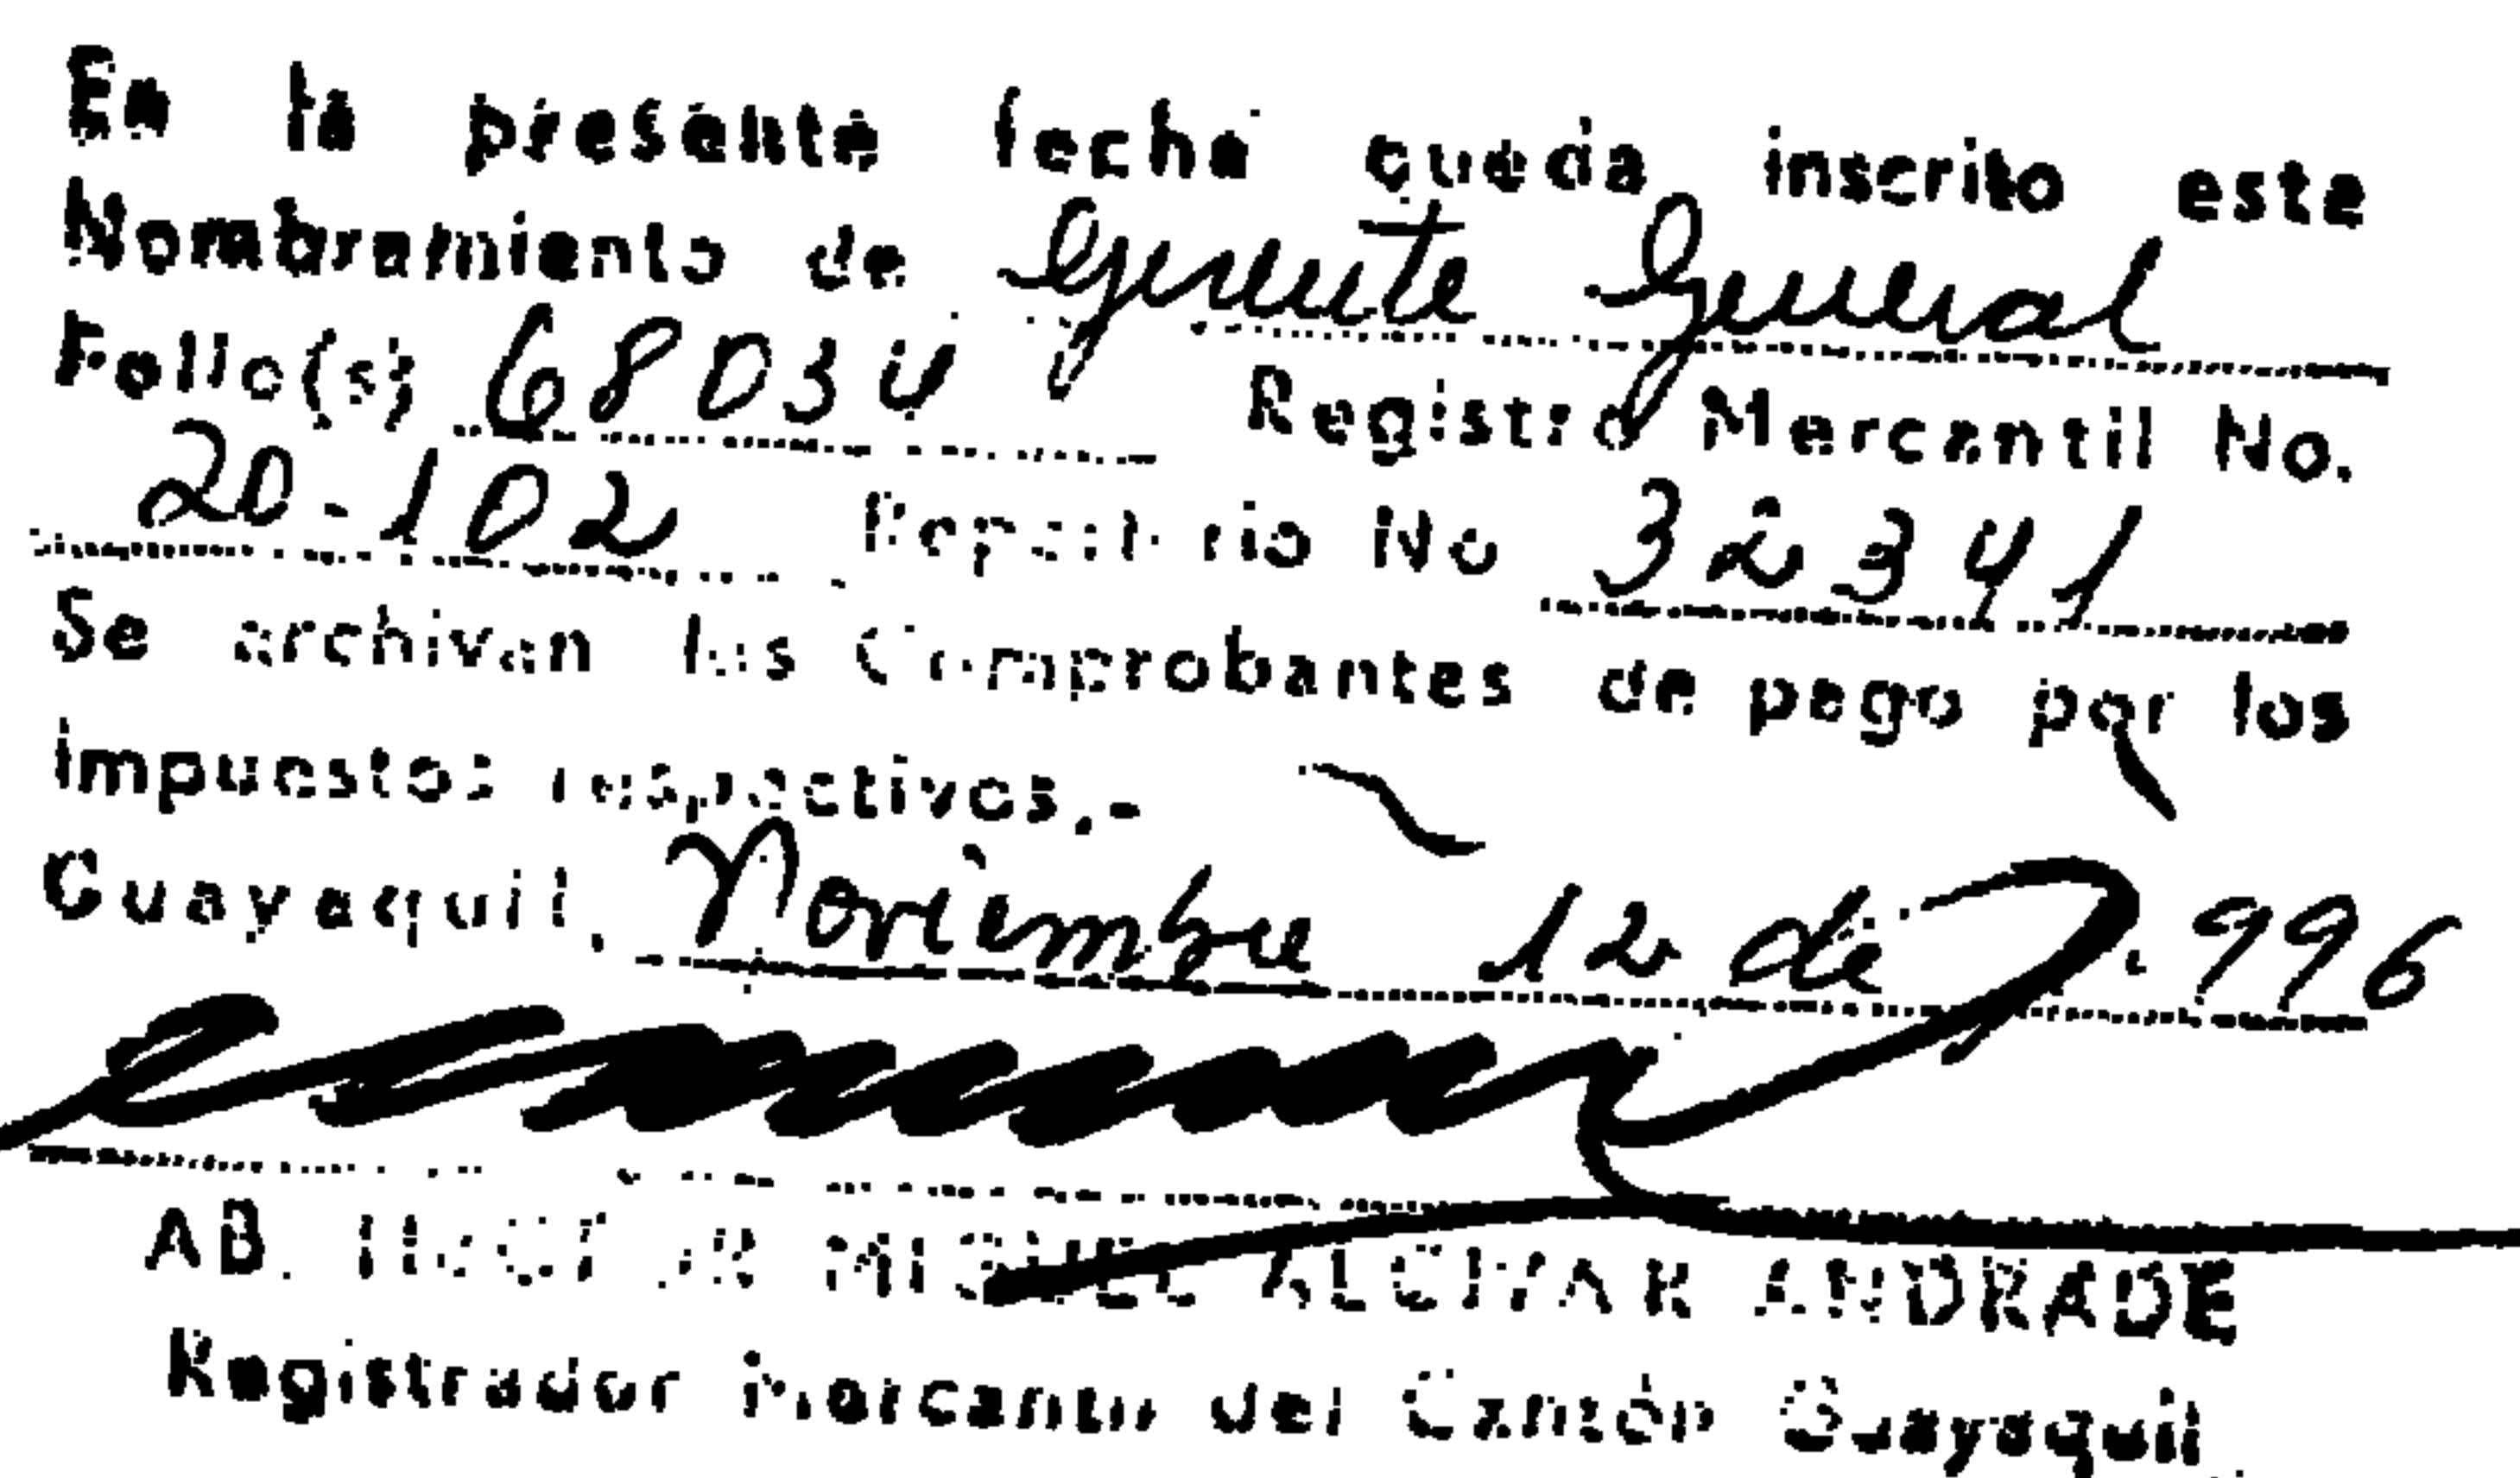 En la presente fecha queda inscrito este
Nombramiento de Gerente General
Folio(s) 6803 Registro Mercantil No.
20-102 Repertorio No 32341
Se archivan los Comprobantes de pago por los
Impuestos respectivos.-
Guayaquil, Noviembre 12 de 1.996
AB. HECTOR MIGUEL ALCIVAR ANDRADE
Registrador Mercantil del Cantón Guayaquil